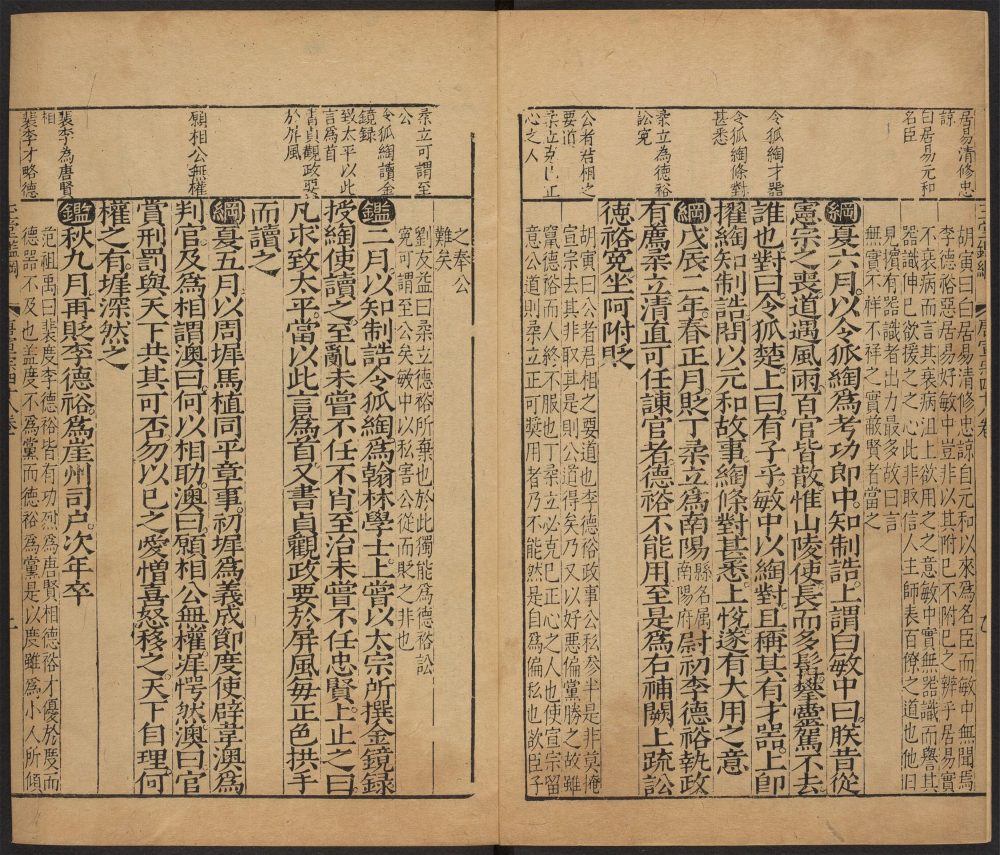 居易清修忠
諒
白居易元和
名臣
令狐綯才器
令狐綯條對
甚悉
柔立為德裕
訟寃
公者君相之
要道
柔立克己正
心之人
胡寅曰白居易清修忠諒自元和以來為名臣而敏中無聞焉
李德裕惡居易好敏中豈非以其附已不附已之辨乎居易實
不衰病而言其衰病沮上欲用之之意敏中實無器識而譽其
器識伸已欲援之之心此非取信人主師表百僚之道也他旧
見擯有器識者出力最多故曰言
無實不祥不祥之實蔽賢者當之
綱夏六月以令狐綯為考功郎中知制誥上謂白敏中曰朕昔從
憲宗之喪道遇風雨百官皆散惟山陵使長而多髯攀靈駕不去
誰也對曰令狐楚上曰有子乎敏中以綯對且稱其有才器上即
擢綯知制誥問以元和故事綯條對甚悉上悅遂有大用之意
綱戊辰二年春正月貶丁柔立為南陽縣名属南陽府尉初李德裕執政
有薦柔立清直可任諫官者德裕不能用至是為右補闕上疏訟
德裕寃坐阿附貶
胡寅曰公者君相之要道也李德裕政事公私叅半是非莫掩
宣宗去其非取其是則公道得矣乃又以好惡偏黨勝之故雖
竄德裕而人終不服也丁柔立必克已正心之人也使宣宗留
意公道則柔立正可奬用者乃不能然是自為偏私也欲臣子
柔立可謂至
公
令狐綯讀金
鏡録
致太平以此
言為首
書貞觀政要
於屏風
願相公無權
裴李為唐賢
相
裴李才略德
之奉公
難矣
劉友益曰柔立德裕所棄也於此獨能為德裕訟
寃可謂至公矣敏中以私害公從而貶之非也
鑑二月以知制誥令狐綯為翰林學士上嘗以太宗所撰金鏡録
授綯使讀之至亂未嘗不任不肖至治未嘗不任忠賢上止之曰
凡求致太平當以此言為首又書貞觀政要於屏風每正色拱手
而讀之
綱夏五月以周墀馬植同平章事初墀為義成節度使辟韋澳為
判官及為相謂澳曰何以相助澳曰願相公無權墀愕然澳曰官
賞刑罰與天下共其可否勿以已之愛憎喜怒移之天下自理何
權之有墀深然之
鑑秋九月再貶李德裕為崖州司户次年卒
范祖禹曰裴度李德裕皆有功烈為唐賢相德裕才優於度而
德器不及也盖度不為黨而德裕為黨是以度雖為小人所傾